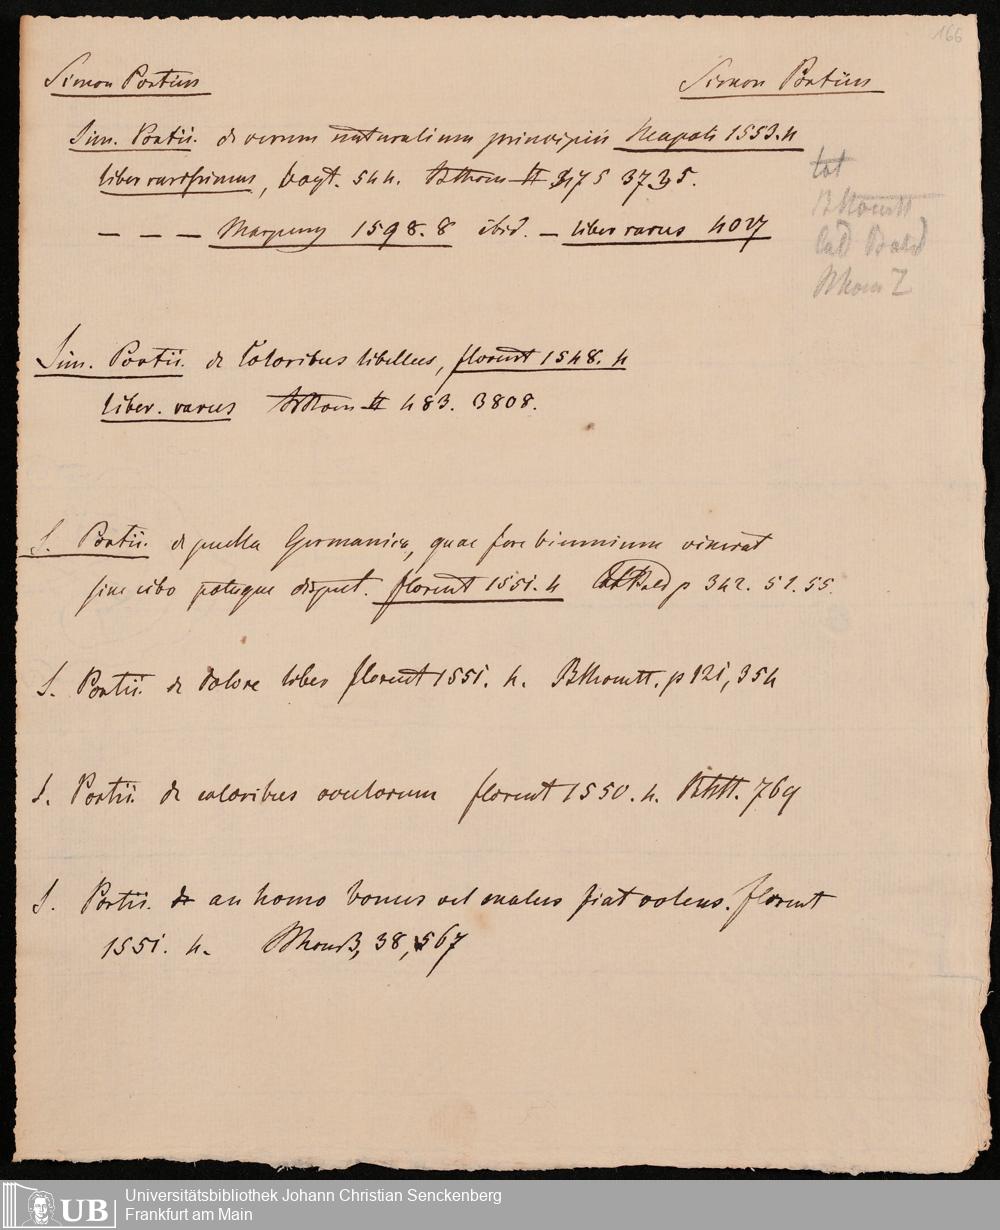 166
Simon Portius Simon Portius
Sim. Portii. de rerum naturalium principiis Neapoli 1553. 4
liber rarissimus, Vogt. 544. 3735.
— — — Marpurg 1598. 8 ibid. — liber rarus 4027
tot
Sim. Portii. de Coloribus libellus, florent 1548. 4
liber. rarus 483. 3808.
S. Portii. de puella Germanica, quae fere biennium vixerat
sine cibo potuque disput. florent 1551. 4 p 342. 51. 55.
S. Portii. de dolore liber florent 1551. 4. p 121, 354
S. Portii. de coloribus oculorum florent 1550. 4. 769
S. Portii. de an homo bonus vel malus fiat volens. florent
1551. 4. 38, 567
UB Universitätsbibliothek Johann Christian Senckenberg
Frankfurt am Main